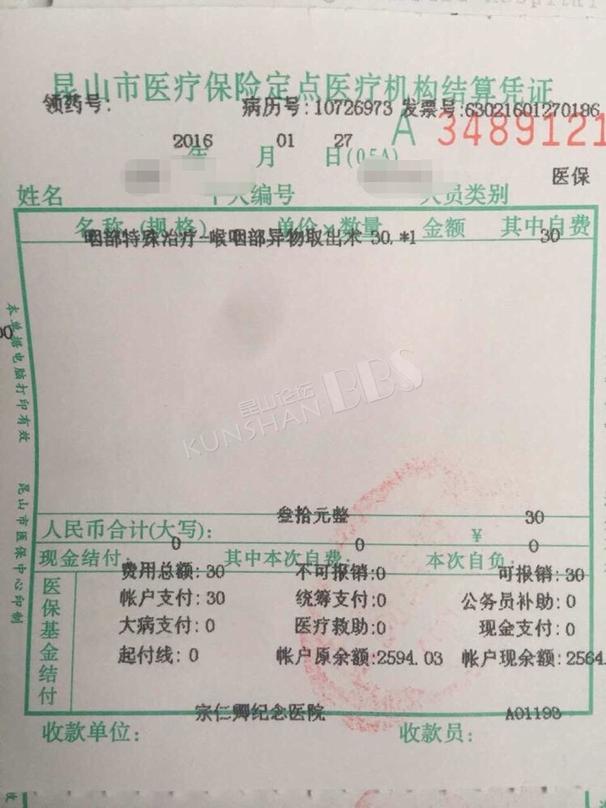 昆山市医疗保险定点医疗机构结算凭证
领药号: 病历号:10726973 发票号:63021601270186
2016 01 27 A 3489121
年 月 日(05A)
医保
姓名 个人编号 人员类别
名称(规格) 单价×数量 金额 其中自费
咽部特殊治疗-喉咽部异物取出术 30.*1 30
本单据电脑打印有效
昆山论坛
KUNSHAN BBS
叁拾元整 30
人民币合计(大写): ¥
0 0 0
现金结付: 其中本次自费: 本次自负:
医保基金结付
费用总额:30 不可报销:0 可报销:30
帐户支付:30 统筹支付:0 公务员补助:0
大病支付:0 医疗救助:0 现金支付:0
起付线:0 帐户原余额:2594.03 帐户现余额:2564.
昆山市医保中心印制
宗仁卿纪念医院 A01193
收款单位: 收款员: